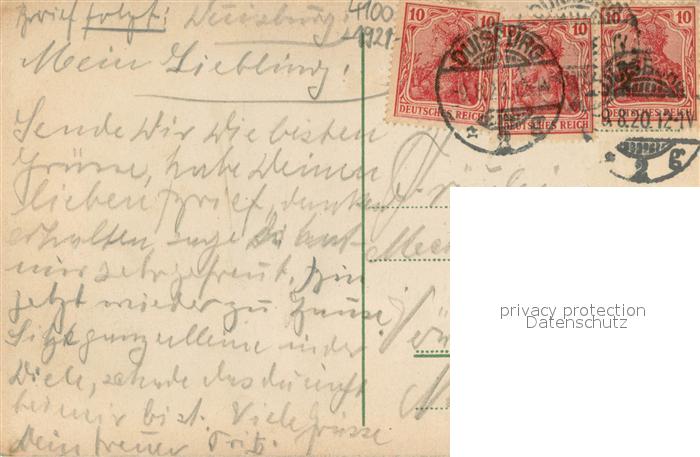 Brief folgt! Duisburg
4100
1921
Mein Liebling!
Sende Dir die besten
Grüsse, habe Deinen
lieben Brief, dankend
erhalten,
mir sehr gefreut, bin
jetzt wieder zu Hause
Sitze ganz alleine in der
Diele, schade das du nicht
bei mir bist. Viele Grüsse
Dein treuer Fritz.
10 10 10
DEUTSCHES REICH
DEUTSCHES REICH
DUISBURG
9.8.20.12-1V
* 2 g
Fräulein
privacy protection
Datenschutz